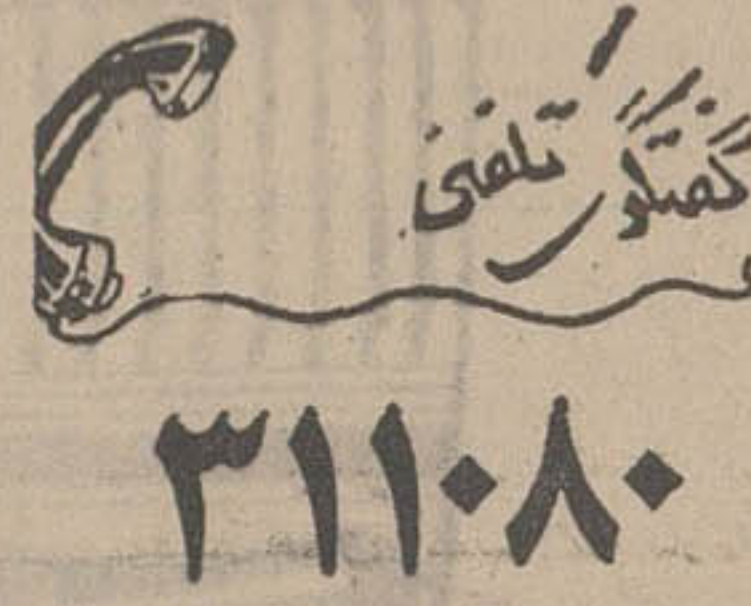 گفتگوی تلفنی
۳۱۱۰۸۰